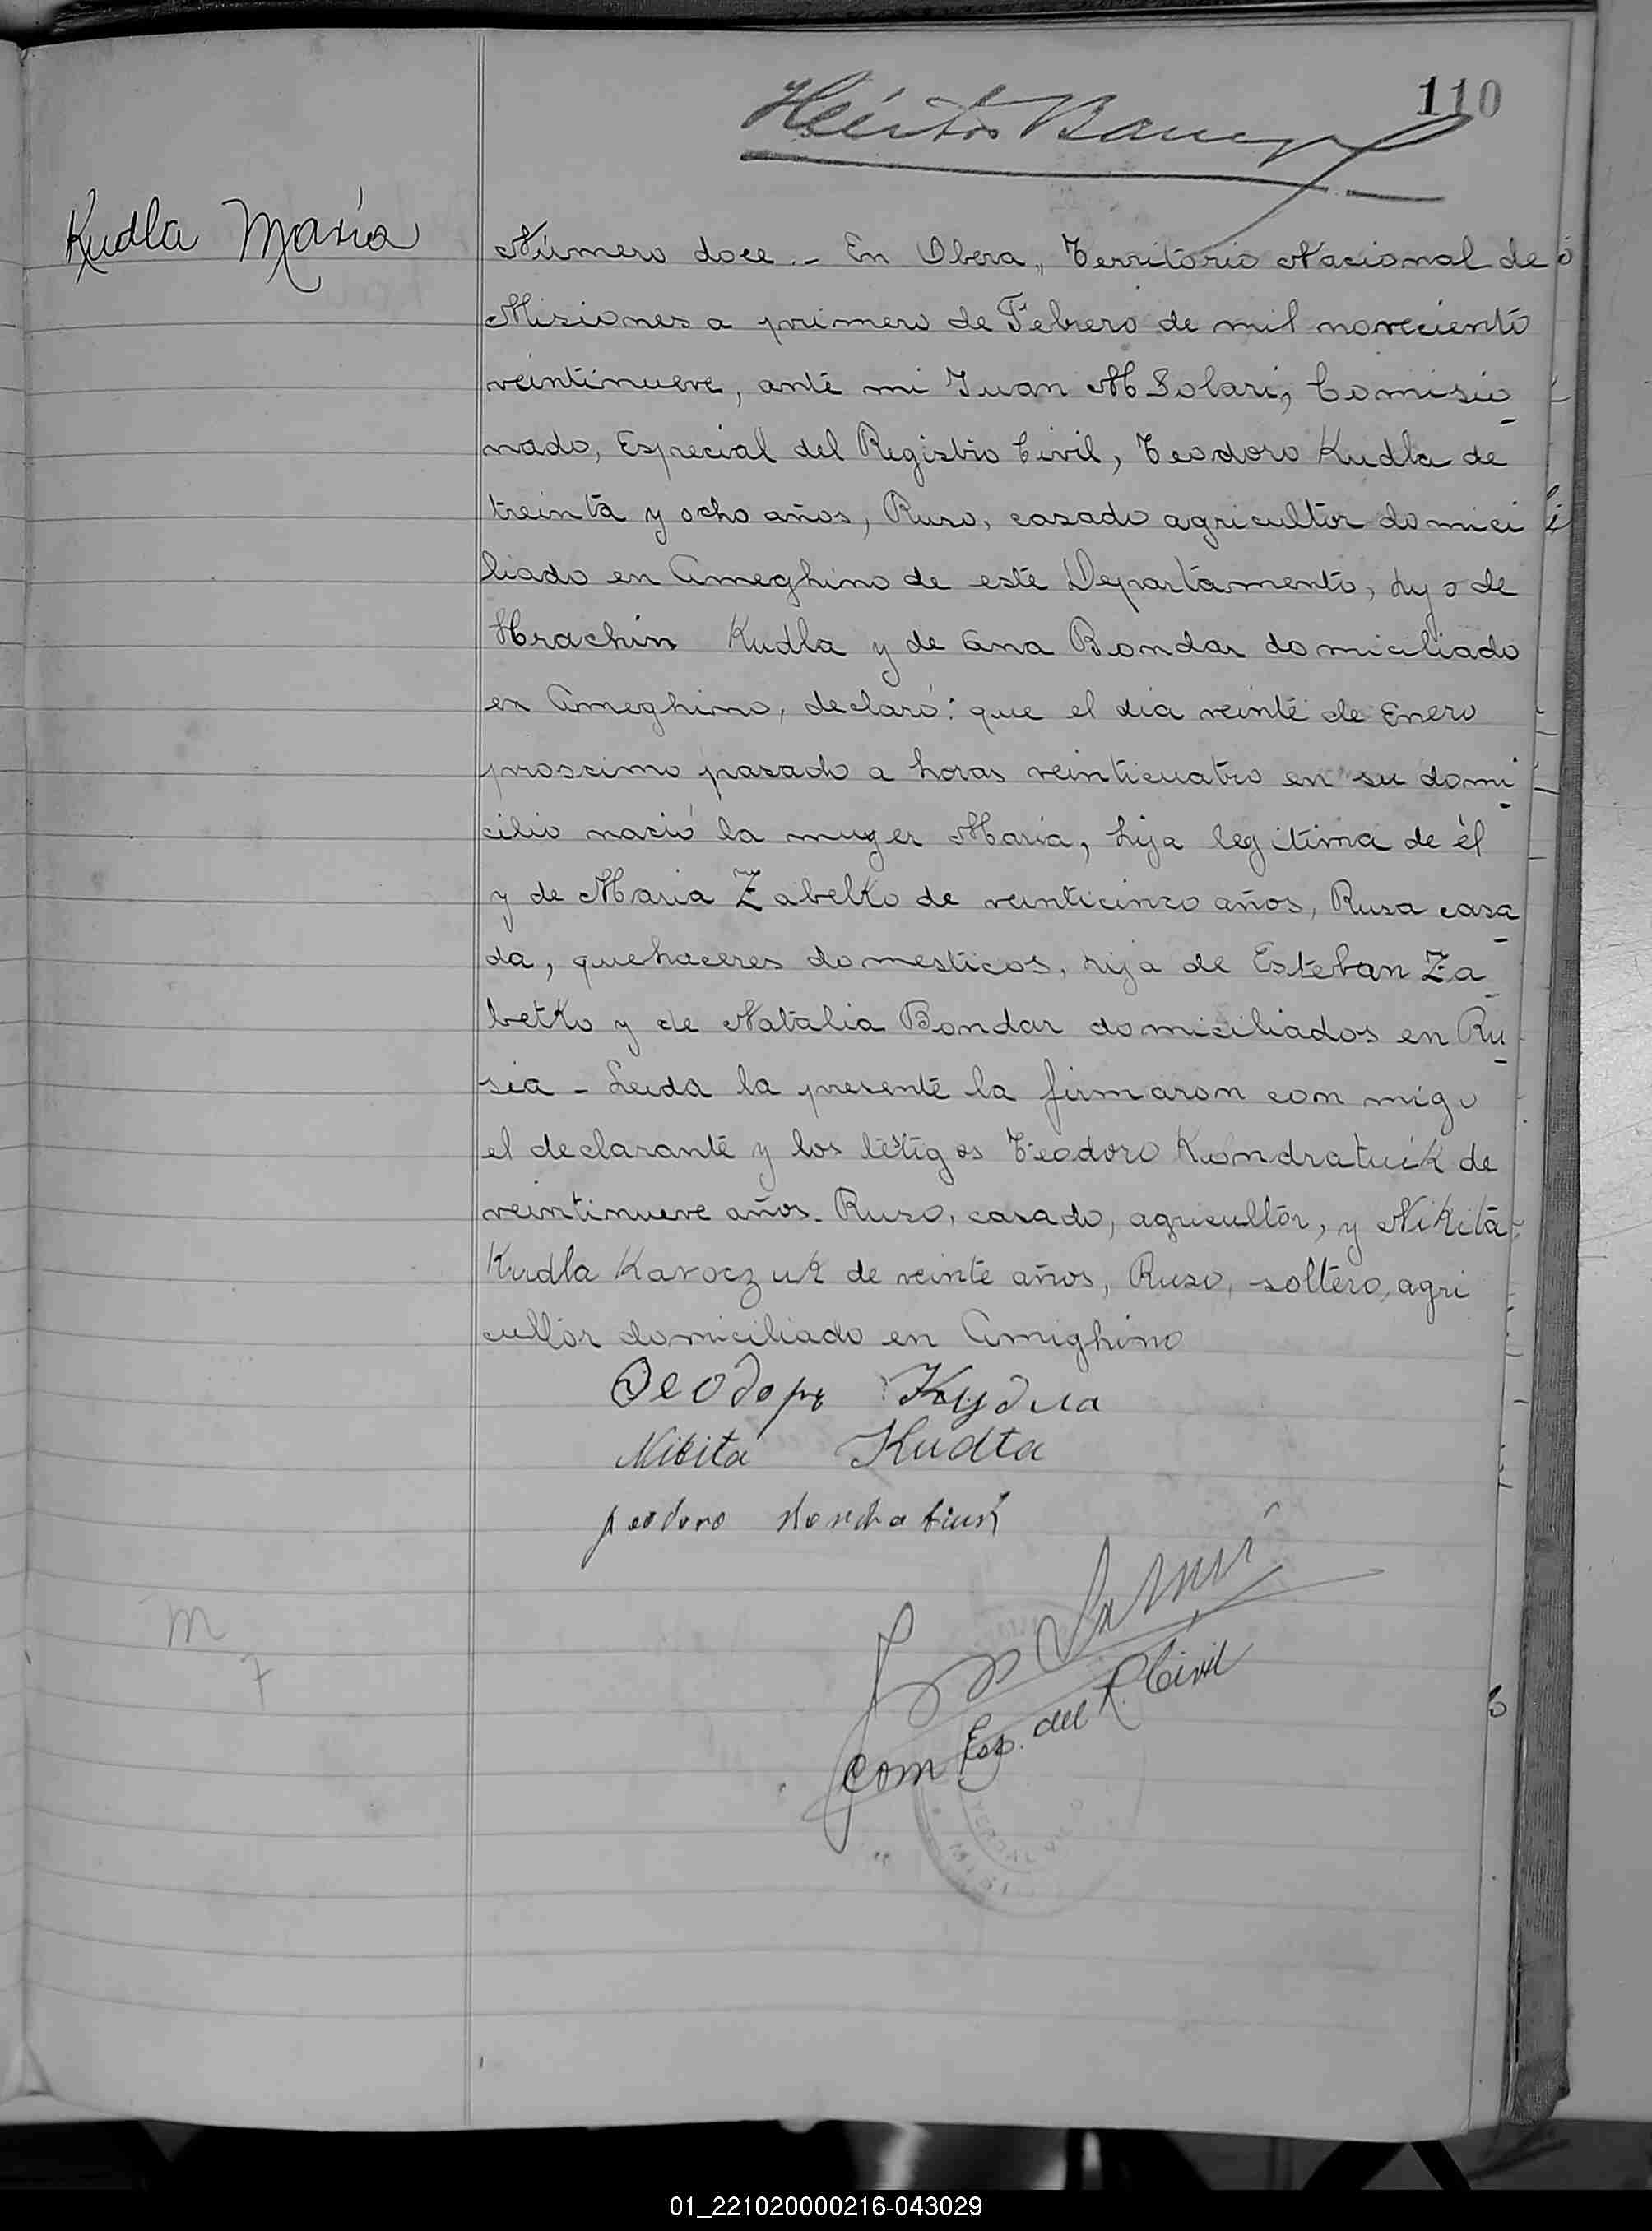 110
Kudla María
Número doce.- En Obera, Territorio Nacional de
Misiones a primero de Febrero de mil novecientó
veintinueve, ante mi Juan M Solari, Comisio-
nado, Especial del Registro Civil, Teodoro Kudla de
treinta y ocho años, Ruso, casado agricultor domici
liado en Ameghino de este Departamento, hyo de
Hrachin Kudla y de Ana Bondar domiciliado
en Ameghino, declaró: que el dia veinte de Enero
proscimo pasado a horas veinticuatro en su domi-
cilio nació la muger Maria, hija legitima de él
y de Maria Zabelko de veinticinco años, Rusa casa-
da, quehaceres domesticos, hija de Esteban Za-
betko y de Natalia Bondar domiciliados en Ru-
sia - Leida la presente la firmaron con migo
el declarante y los tetigos Teodoro Kondratuik de
veintinueve años. Ruso, casado, agricultor, y Nikita
Kudla Karoczuk de veinte años, Ruso, soltero, agri
cultor domiciliado en Amighino
Ѳеодоръ Кудла
Nikita Kudta
Com Esp. del R. Civil
M
7
01_221020000216-043029